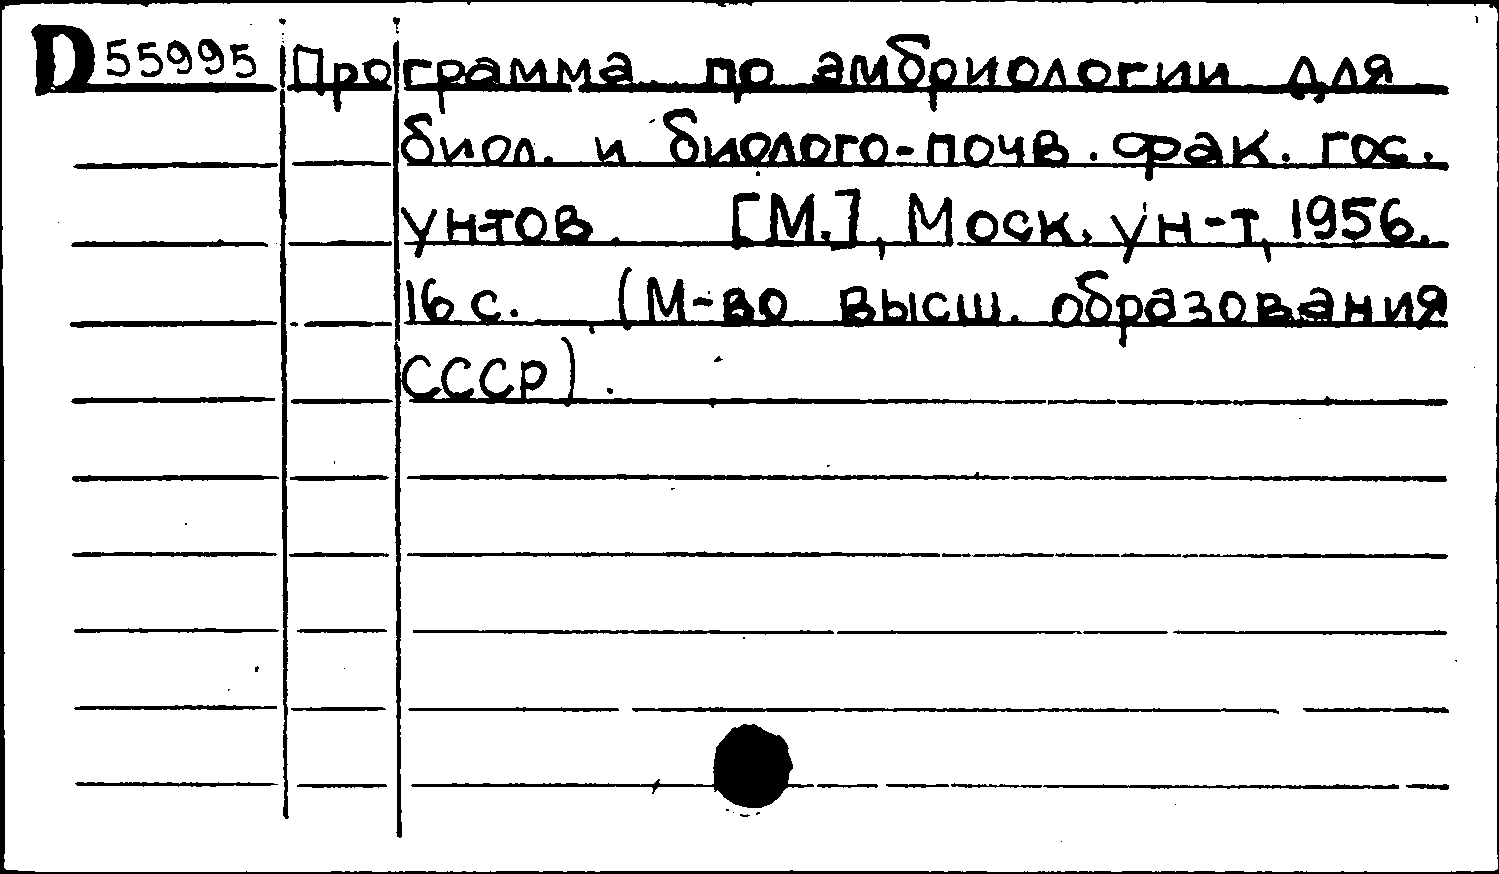 D 55995 Программа по амбриологии для
биол. и биолого-почв. фак. гос.
ун-тов. [М.], Моск. ун-т, 1956.
16 с. (М-во высш. образования
СССР).